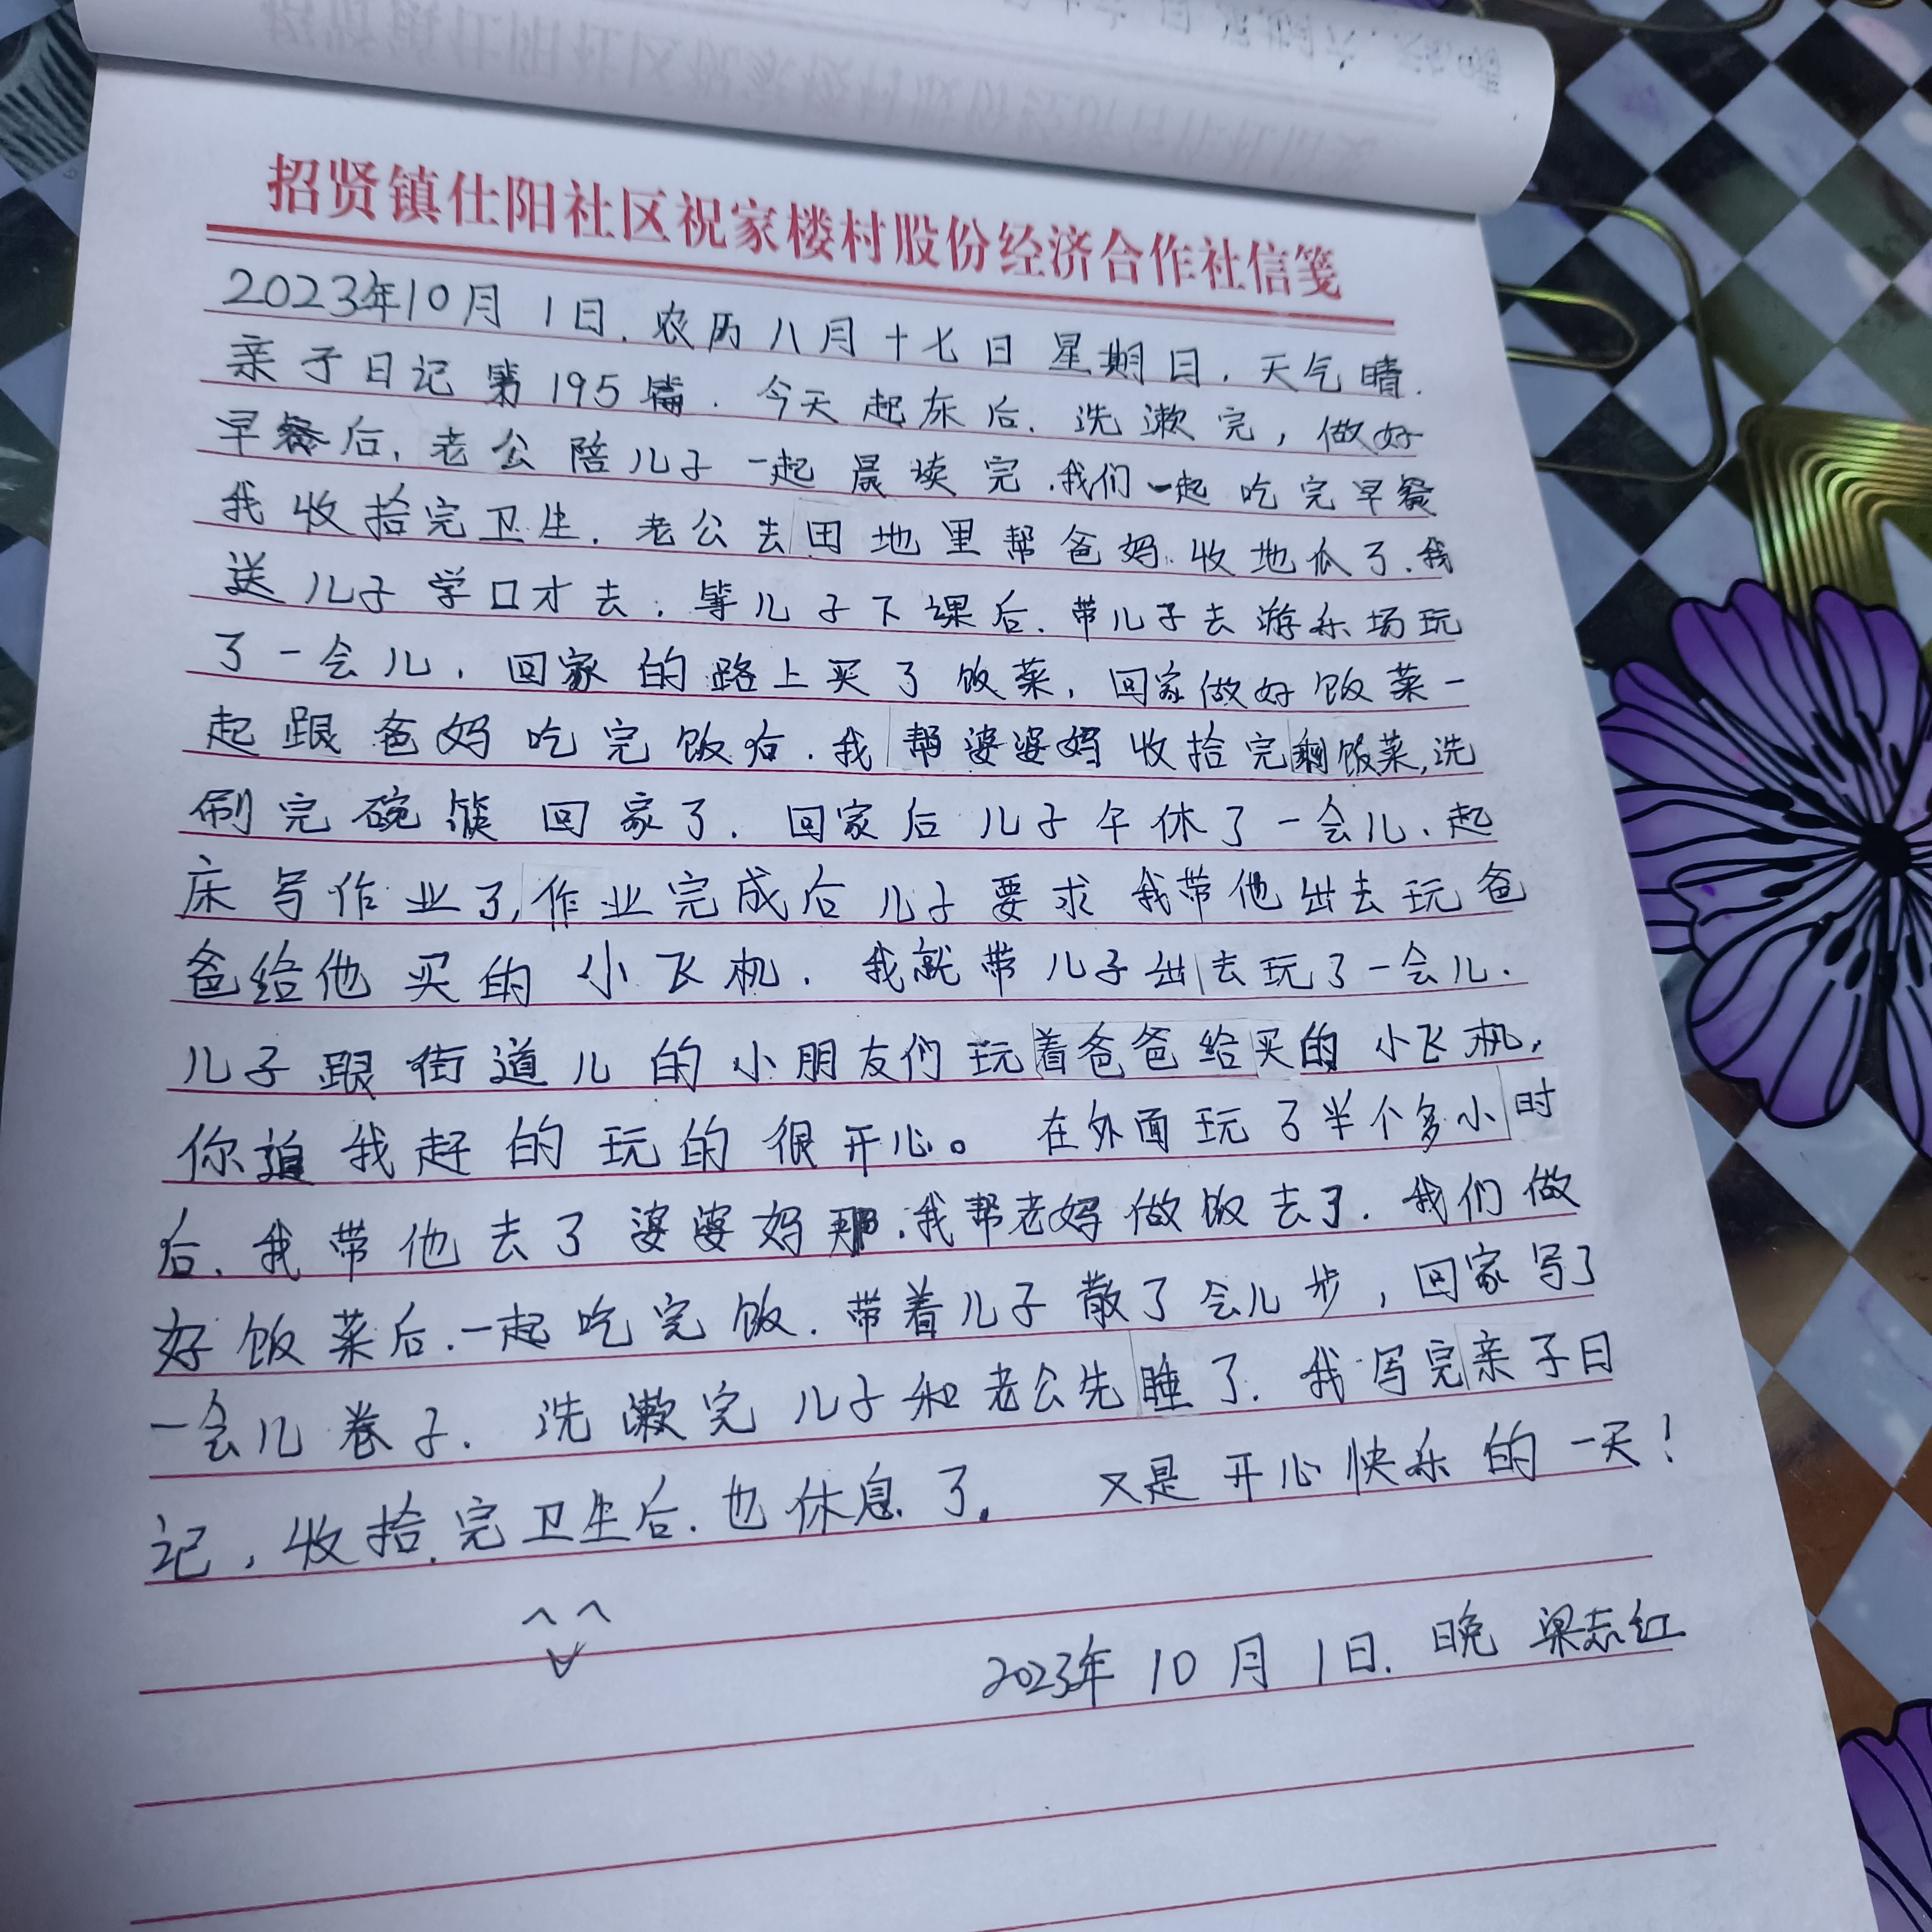 招贤镇仕阳社区祝家楼村股份经济合作社信笺
2023年10月1日.农历八月十七日星期日.天气晴.
亲子日记第195篇.今天起床后.洗漱完,做好
早餐后.老公陪儿子一起晨读完.我们一起吃完早餐
我收拾完卫生.老公去田地里帮爸妈收地瓜了.我
送儿子学口才去.等儿子下课后.带儿子去游乐场玩
了一会儿.回家的路上买了饭菜.回家做好饭菜一
起跟爸妈吃完饭后.我帮婆婆妈收拾完剩饭菜,洗
刷完碗筷回家了.回家后儿子午休了一会儿.起
床写作业了,作业完成后儿子要求我带他出去玩爸
爸给他买的小飞机.我就带儿子出去玩了一会儿.
儿子跟街道儿的小朋友们玩着爸爸给买的小飞机,
你追我赶的玩的很开心。在外面玩了半个多小时
后.我带他去了婆婆妈那.我帮老妈做饭去了.我们做
好饭菜后.一起吃完饭.带着儿子散了会儿步,回家写了
一会儿卷子.洗漱完儿子和老公先睡了.我写完亲子日
记,收拾完卫生后.也休息了。又是开心快乐的一天!
2023年10月1日.晚 梁志红